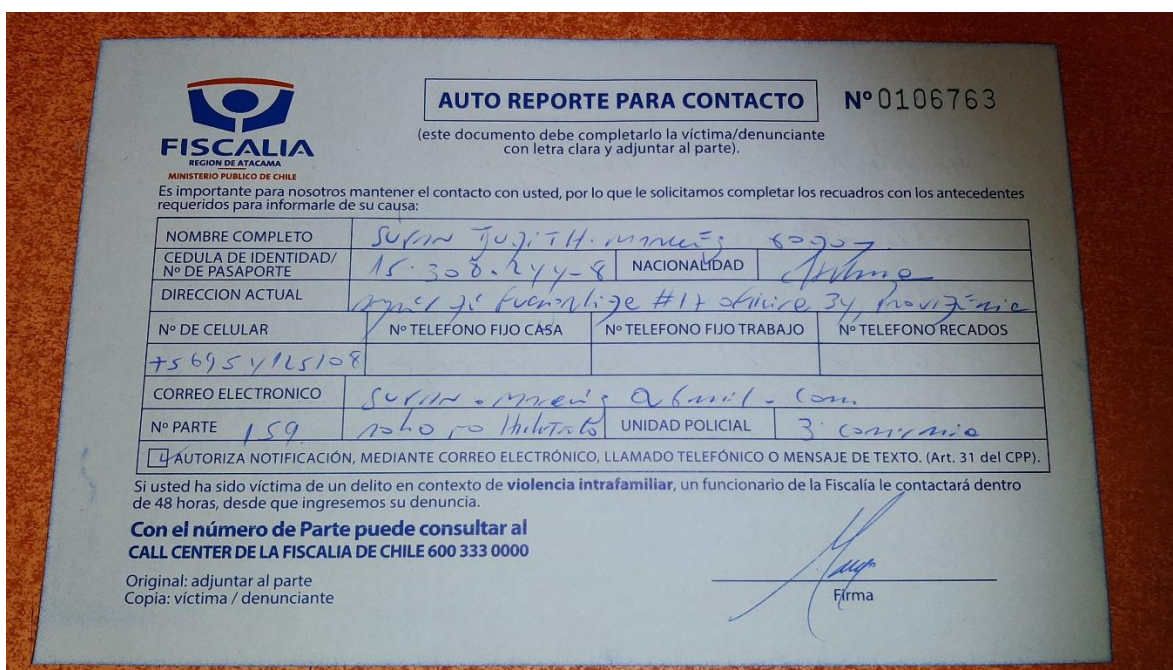 AUTO REPORTE PARA CONTACTO
Nº 0106763
(este documento debe completarlo la víctima/denunciante
con letra clara y adjuntar al parte).
FISCALIA
REGION DE ATACAMA
MINISTERIO PUBLICO DE CHILE
Es importante para nosotros mantener el contacto con usted, por lo que le solicitamos completar los recuadros con los antecedentes
requeridos para informarle de su causa:
NOMBRE COMPLETO
CEDULA DE IDENTIDAD/
Nº DE PASAPORTE 15.308.244-8 NACIONALIDAD
DIRECCION ACTUAL #17 34,
Nº DE CELULAR Nº TELEFONO FIJO CASA Nº TELEFONO FIJO TRABAJO Nº TELEFONO RECADOS
CORREO ELECTRONICO
Nº PARTE 159 UNIDAD POLICIAL 3
AUTORIZA NOTIFICACIÓN, MEDIANTE CORREO ELECTRÓNICO, LLAMADO TELEFÓNICO O MENSAJE DE TEXTO. (Art. 31 del CPP).
Si usted ha sido víctima de un delito en contexto de violencia intrafamiliar, un funcionario de la Fiscalía le contactará dentro
de 48 horas, desde que ingresemos su denuncia.
Con el número de Parte puede consultar al
CALL CENTER DE LA FISCALIA DE CHILE 600 333 0000
Original: adjuntar al parte
Copia: víctima / denunciante
Firma